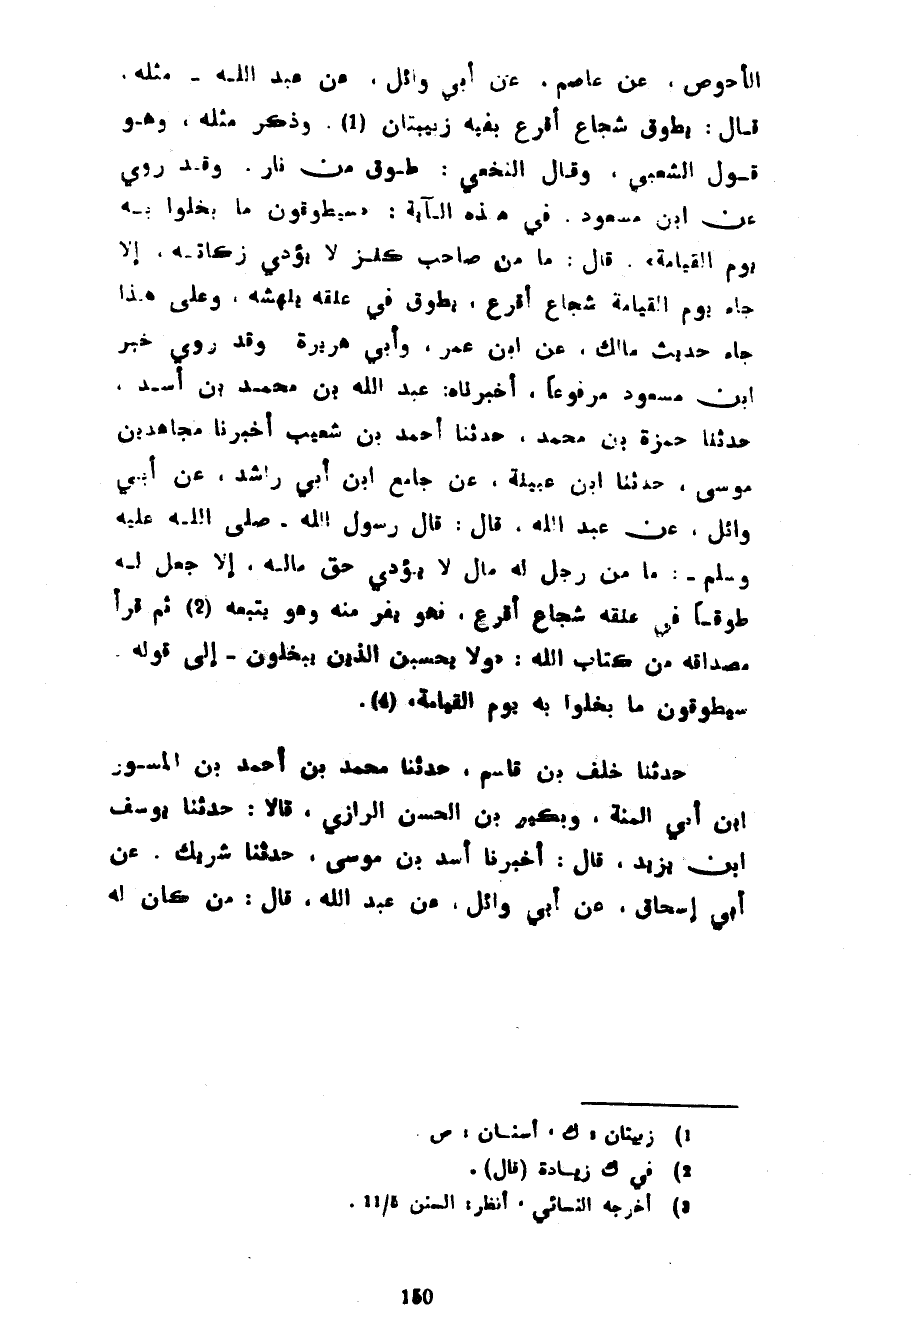 الأحوص ، عن عاصم . عن أبي وائل ، عن عبد اللـه ـ مثله ،
قـال : يطوق شجاع أقرع بفيه زبيبتان (1) . وذكر مثله ، وهـو
قـول الشعبي ، وقـال النخعي : طـوق مـن نار . وقـد روي
عـن ابن مسعود . في هـذه الـآية : «سيطوقون ما بخلوا بـه
يوم القيامة» . قال : ما من صاحب كنـز لا يؤدي زكاتـه ، إلا
جاء يوم القيامة شجاع أقرع ، يطوق في عنقه ينهشه ، وعلى هـذا
جاء حديث مالك ، عن ابن عمر ، وأبي هريرة وقد روي خبر
ابن مسعود مرفوعاً ، أخبرناه: عبد الله بن محمـد بن أسـد ،
حدثنا حمزة بن محمد ، حدثنا أحمد بن شعيب أخبرنا مجاهدبن
موسى ، حدثنا ابن عيينة ، عن جامع ابن أبي راشد ، عن أبـي
وائل ، عـن عبد الله ، قال : قال رسول الله ـ صلى اللـه عليه
وسلم ـ : ما من رجل له مال لا يـؤدي حق مالـه ، إلا جعل لـه
طوقـاً في عنقه شجاع أقرع ، فهو يفر منه وهو يتبعه (2) ثم قرأ
مصداقه من كتاب الله : «ولا يحسبن الذين يبخلون ـ إلى قوله .
سيطوقون ما بخلوا به يوم القيامة» (4).
حدثنا خلف بن قاسم ، حدثنا محمد بن أحمد بن المسـور
ابن أبي المنة ، وبكير بن الحسن الرازي ، قالا : حدثنا يوسف
ابـن يزيد ، قال : أخبرنا أسد بن موسى ، حدثنا شريك . عن
أبي إسحاق ، عن أبي وائل ، عن عبد الله ، قال : من كان له
1) زبيتان : ك ، أسنـان : ص .
2) في ك زيـادة (قال) .
3) أخرجه النسائي ، أنظر: السنن 11/5 .
150